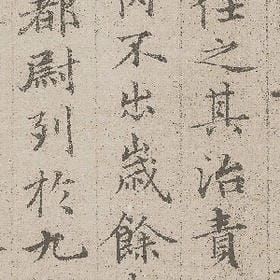 任之其治責
內不出歲餘
都尉列於九